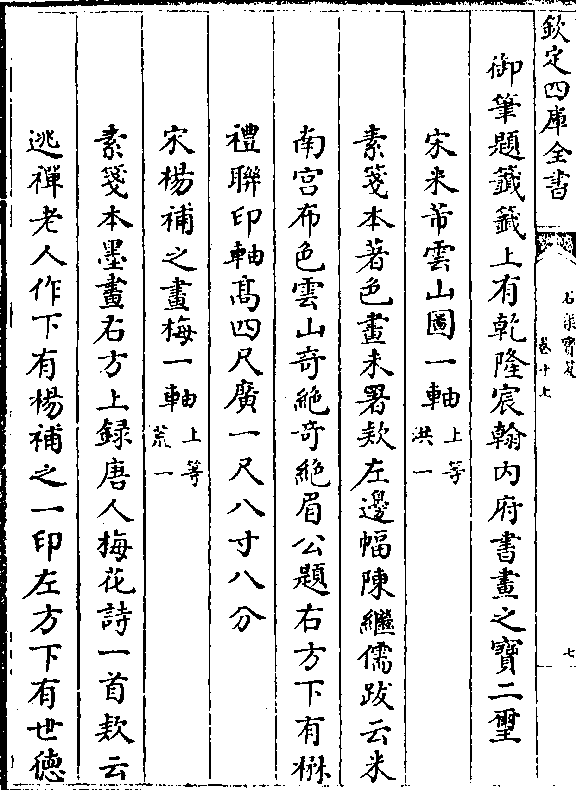 欽定四庫全書
石渠寳笈
卷十上
七
御筆題籖籖上有乾隆宸翰内府書畫之寶二璽
宋米芾雲山圖一軸上等洪一
素箋本著色畫未署欵左邊幅陳繼儒跋云米
南宫布色雲山奇絶奇絶眉公題右方下有楙
禮聯印軸髙四尺廣一尺八寸八分
宋楊補之畫梅一軸上等荒一
素箋本墨畫右方上録唐人梅花詩一首欵云
逃禪老人作下有楊補之一印左方下有世德